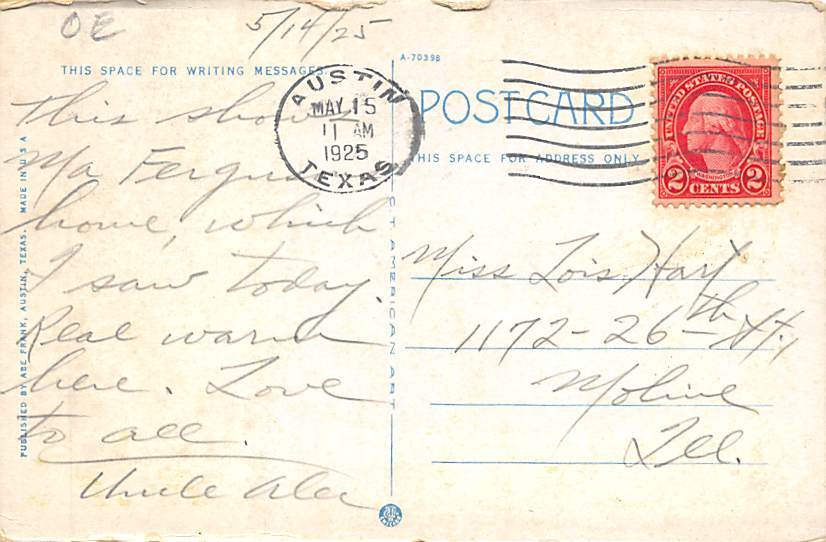 OE
5/14/25
THIS SPACE FOR WRITING MESSAGES.
A-70398
AUSTIN
MAY 15
11 AM
1925
TEXAS
POST CARD
THIS SPACE FOR ADDRESS ONLY
UNITED STATES POSTAGE
WASHINGTON
2 CENTS 2
This shows
Ma Ferguson
home, which
I saw today.
Real warm
here. Love
to all.
Uncle Alec
Miss Lois Hart
1172-26th St.,
Moline
Ill.
PUBLISHED BY ABE FRANK, AUSTIN, TEXAS. MADE IN U S A
CT AMERICAN ART